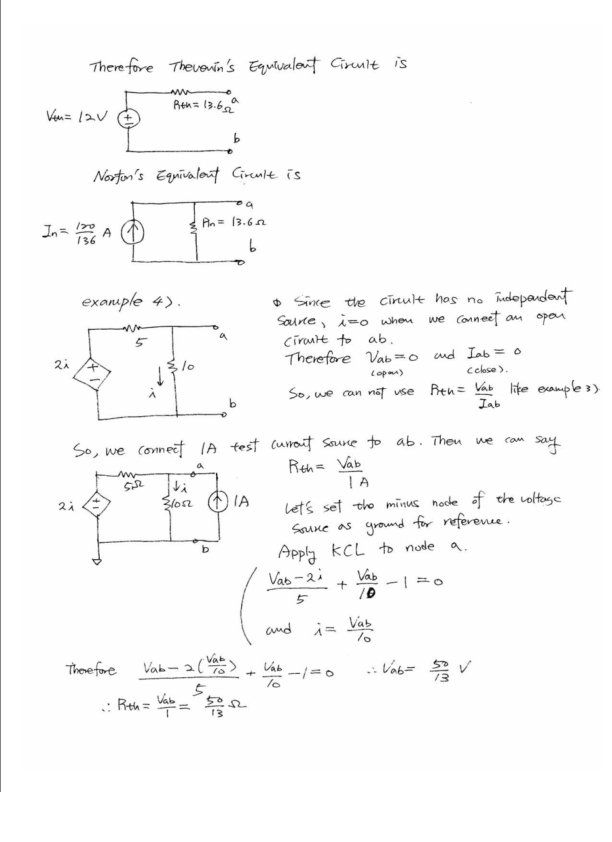 Therefore Thevenin's Equivalent Circuit is
Vth = 12V
Rth = 13.6Ω
a
b
Norton's Equivalent Circuit is
In = 120/136 A
Rn = 13.6Ω
a
b
example 4).
2i
5
10
i
a
b
① Since the circuit has no independent
source, i=0 when we connect an open
circuit to ab.
Therefore Vab = 0 and Iab = 0
(open) (close).
So, we can not use Rth = Vab/Iab like example 3)
So, we connect 1A test current source to ab. Then we can say
Rth = Vab/1A
2i
5Ω
a
i
10Ω
1A
b
Let's set the minus node of the voltage
source as ground for reference.
Apply KCL to node a.
(Vab-2i)/5 + Vab/10 - 1 = 0
and i = Vab/10
Therefore (Vab - 2(Vab/10))/5 + Vab/10 - 1 = 0 ∴ Vab = 50/13 V
∴ Rth = Vab/1 = 50/13 Ω